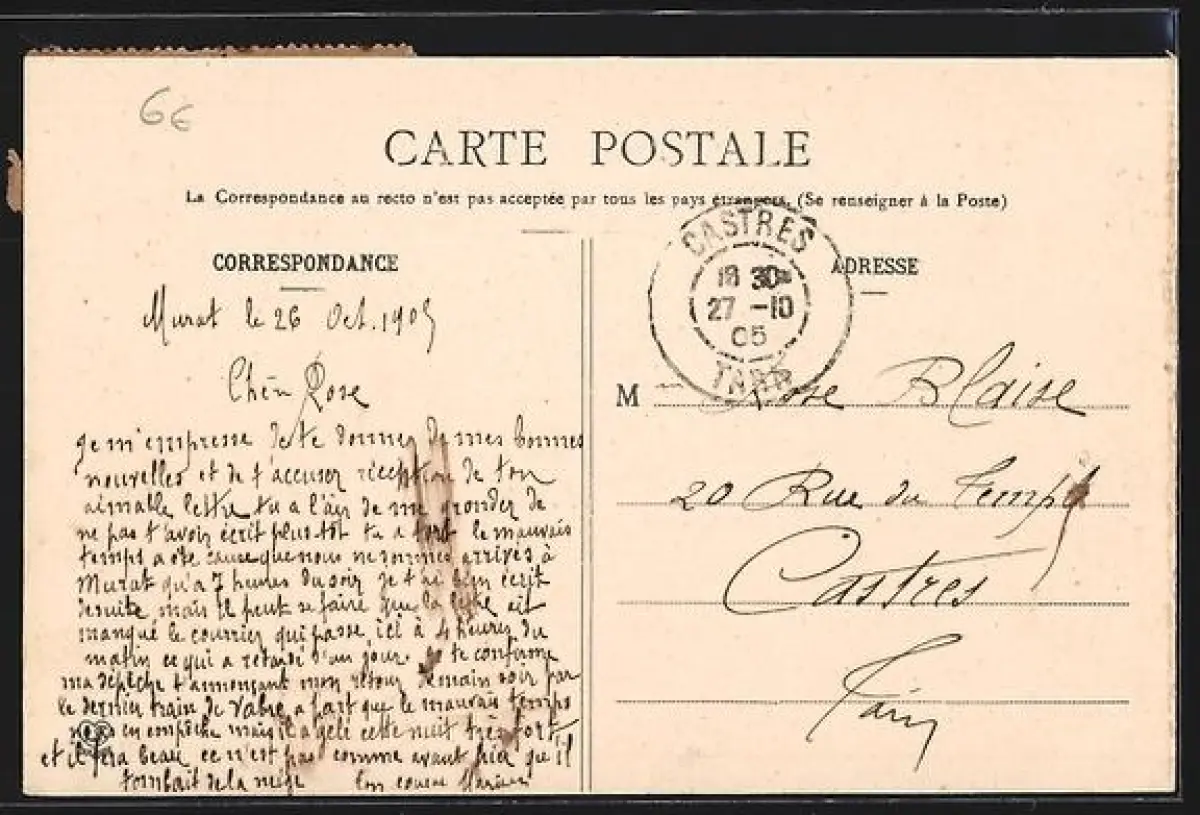 6€
CARTE POSTALE
La Correspondance au recto n'est pas acceptée par tous les pays étrangers. (Se renseigner à la Poste)
CORRESPONDANCE
ADRESSE
CASTRES
18 30
27 -10
05
TARN
Murat le 26 Oct. 1905
Rose
je m'empresse de te donner de mes bonnes
nouvelles et de t'accuser réception de ton
aimable lettre tu a l'air de me gronder de
ne pas t'avoir écrit plus tôt tu a tort le mauvais
temps a été cause que nous ne sommes arrivés à
Murat qu'a 7 heures du soir je t'ai bien écrit
desuite mais il peut se faire que la lettre ait
manqué le courrier qui passe ici à 4 heures du
matin ce qui a retardé d'un jour. je te confirme
ma dépêche t'annonçant mon retour demain soir par
le dernier train de Vabre a part que le mauvais temps
nous en empêche mais il a gelé cette nuit très fort,
et il fera beau ce n'est pas comme avant hier que il
tombait de la neige
M Rose Blaise
20 Rue du Temple
Castres
Tarn